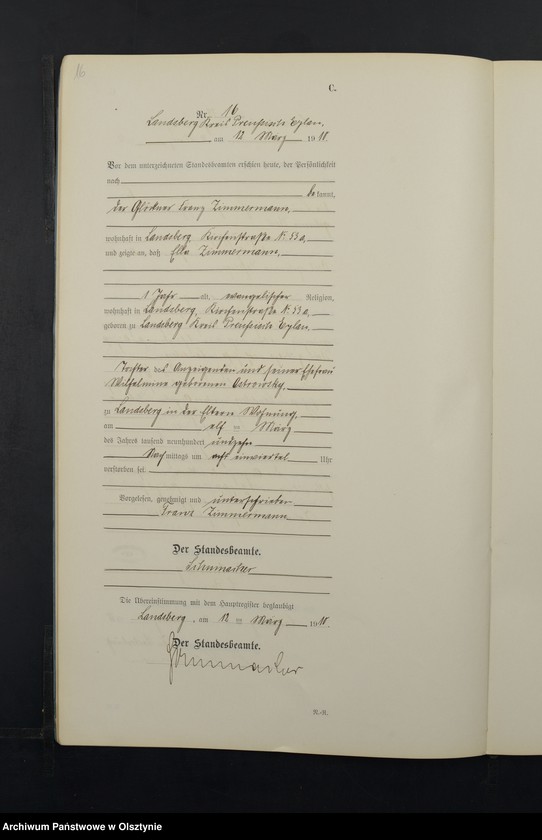 16
C.
Nr. 16
Landsberg Kreis Preussisch Eylau,
am 12 März 1911.
Vor dem unterzeichneten Standesbeamten erschien heute, der Persönlichkeit
nach
be kannt,
der Glöckner Franz Zimmermann,
wohnhaft in Landsberg Kirchenstraße Nr. 53a,
und zeigte an, daß Ella Zimmermann,
1 Jahr alt, evangelischer Religion,
wohnhaft in Landsberg, Kirchenstraße Nr. 53a,
geboren zu Landsberg Kreis Preussisch Eylau,
Tochter des Anzeigenden und seiner Ehefrau
Wilhelmine geborenen Ostrowsky,
zu Landsberg in der Eltern Wohnung,
am elf = März
des Jahres tausend neunhundert
Nach mittags um Uhr
verstorben sei.
Vorgelesen, genehmigt und unterschrieben
Franz Zimmermann
Der Standesbeamte.
Schumacher
Die Übereinstimmung mit dem Hauptregister beglaubigt
Landsberg, am 12 = März 1911.
Der Standesbeamte.
Schumacher
R.-R.
Archiwum Państwowe w Olsztynie